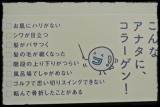 こんな
アナタに、
コラーゲン!
お肌にハリがない
シワが目立つ
髪がパサつく
髪の毛が細くなった
階段の上り下りがつらい
風呂場でしゃがめない
ゴルフで思い切りスイングできない
転んで骨折したことがある